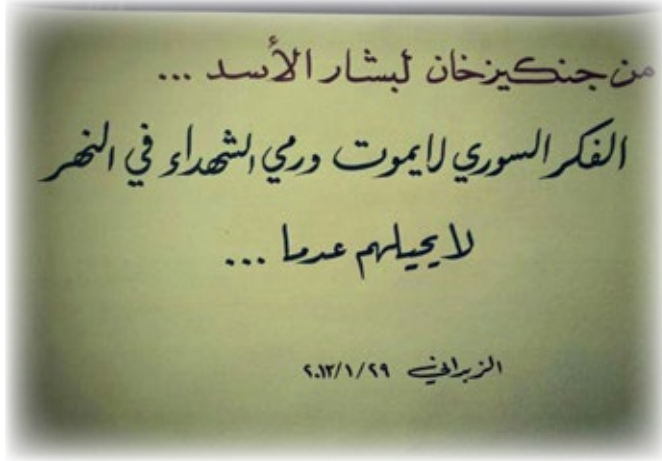 من جنكيزخان لبشار الأسد ...
الفكر السوري لايموت ورمي الشهداء في النهر
لا يحيلهم عدما ...
الزبداني ٢٠١٣/١/٢٩